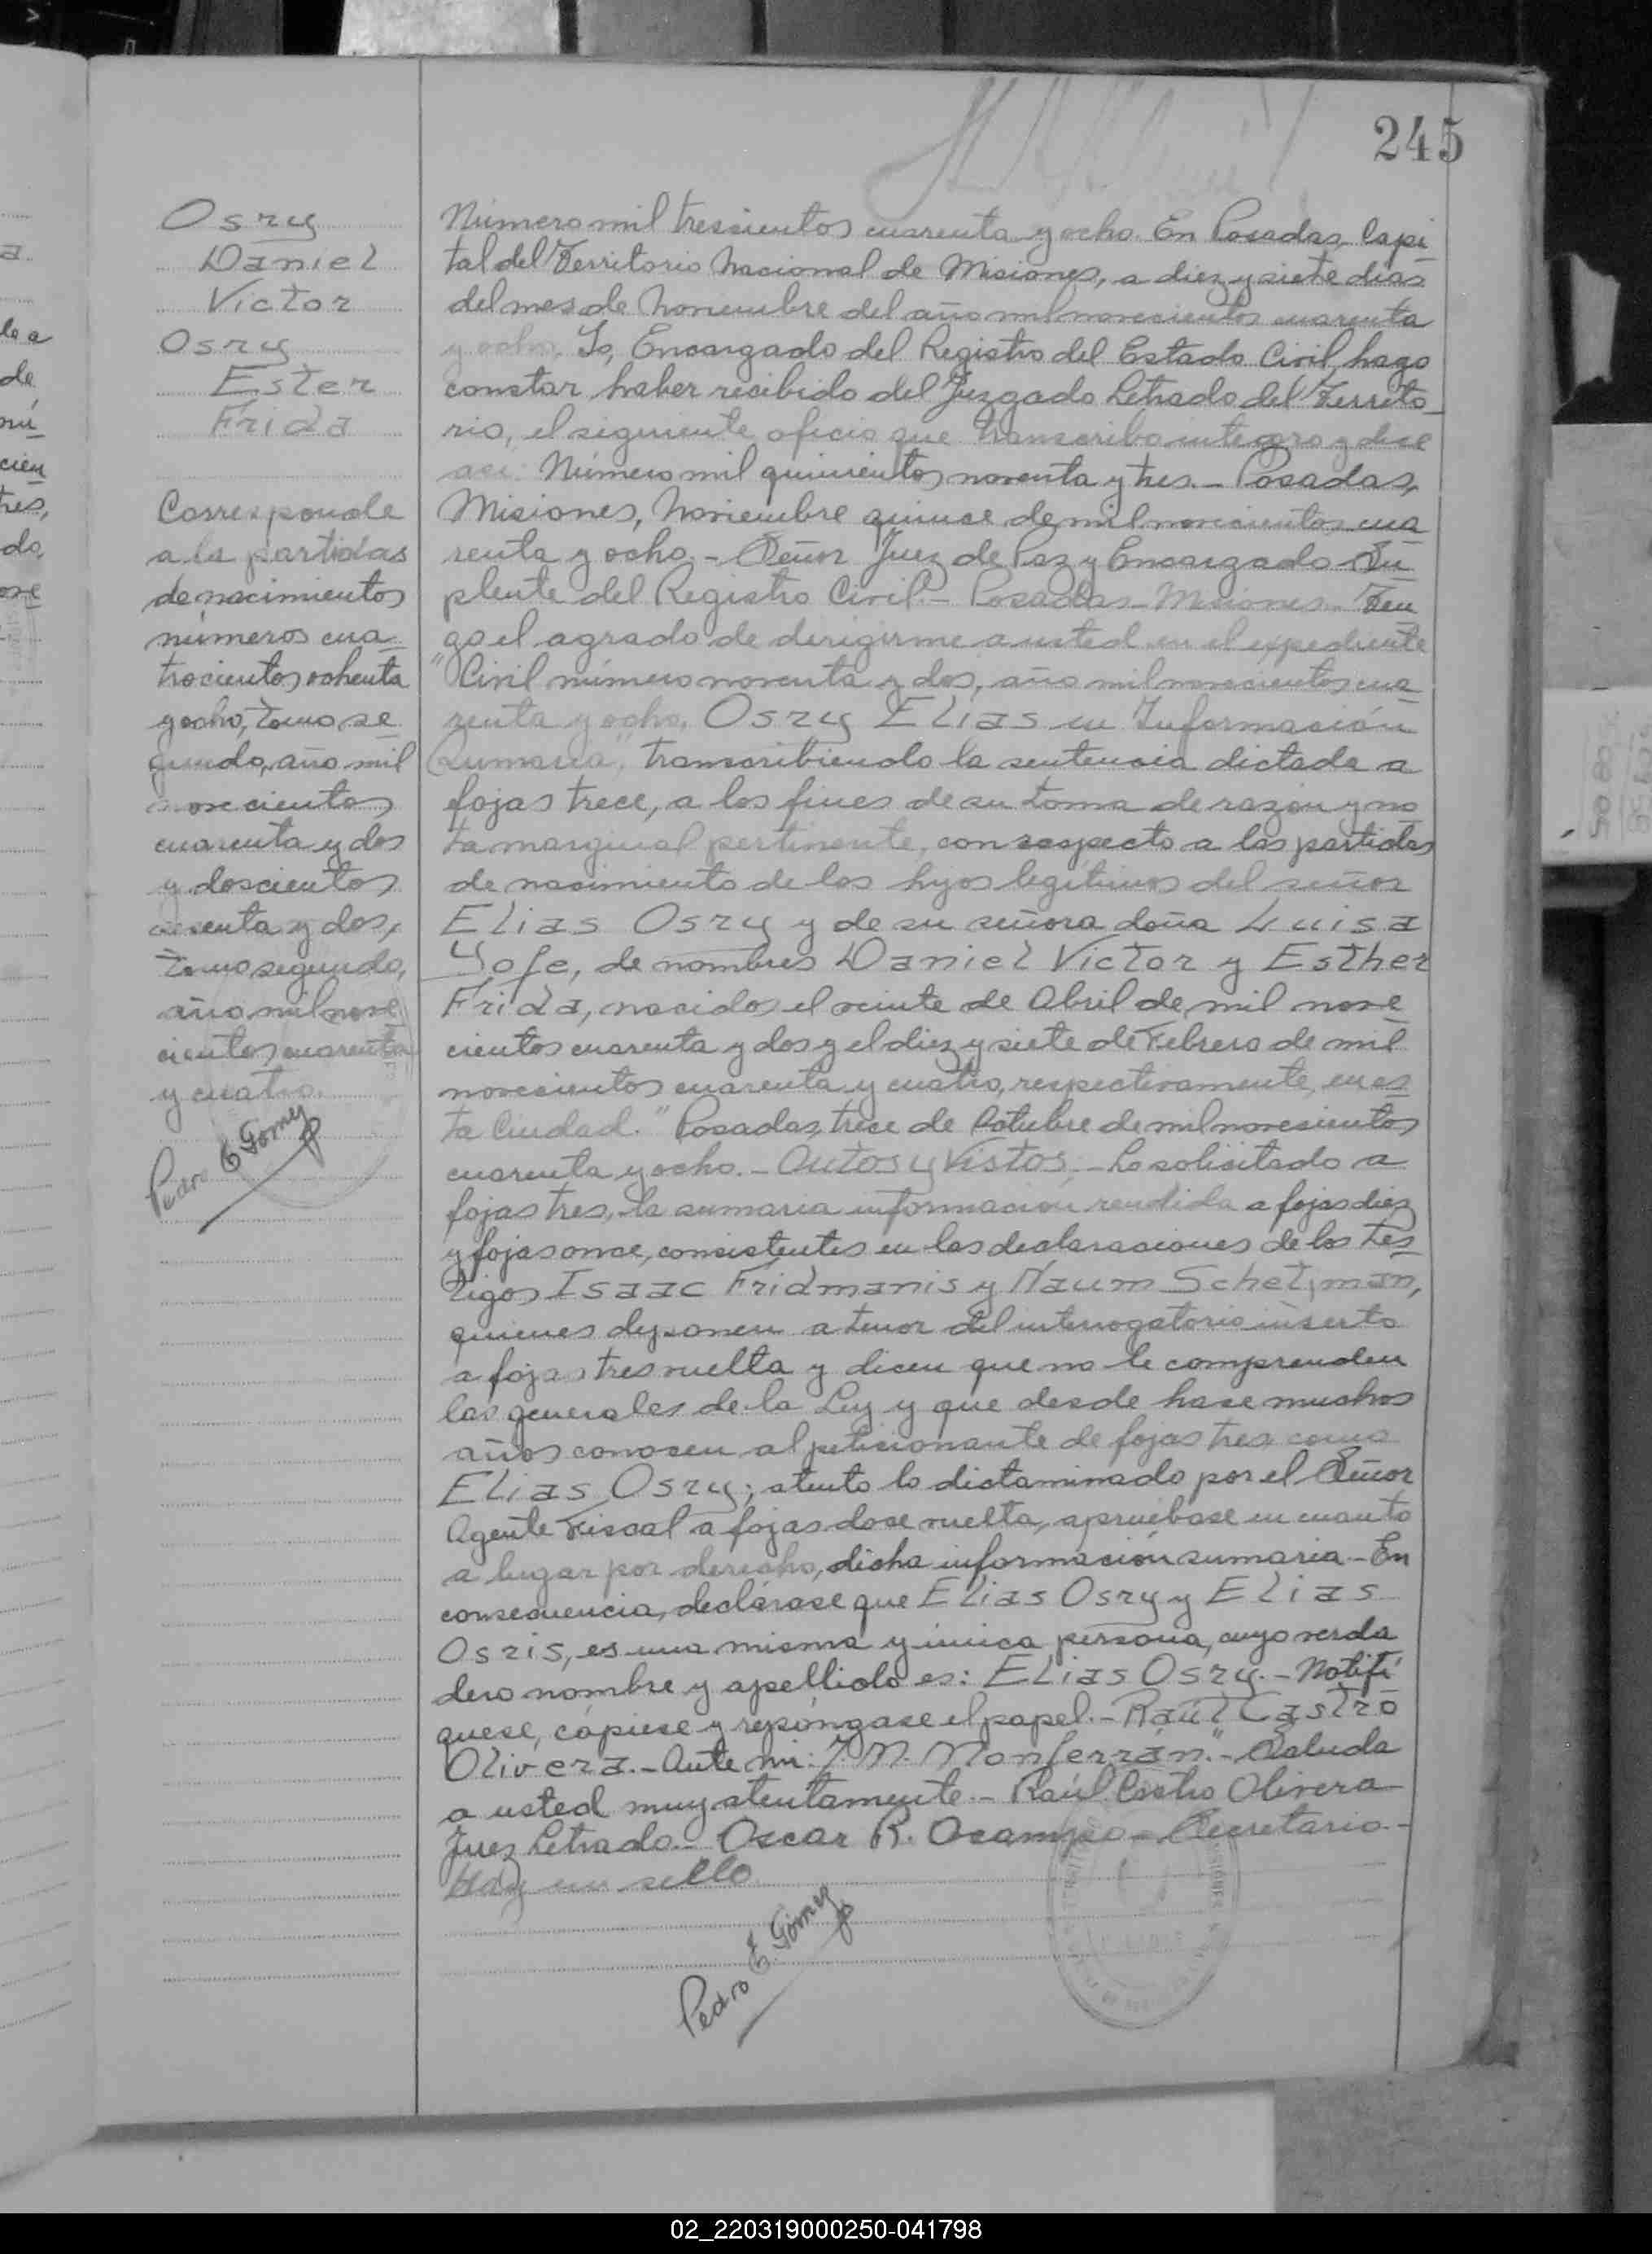 245
Osry
Daniel
Victor
Osry
Ester
Frida
Corresponde
a la partidas
de nacimientos
números cua_
trocientos ochenta
y ocho, tomo se_
gundo, año mil
novecientos
cuarenta y dos
y doscientos
y dos,
tomo segundo,
año mil nove_
cientos cuarenta
y cuatro.
Pedro E Gomez
Número mil trescientos cuarenta y ocho. En Posadas, Capi_
tal del Territorio Nacional de Misiones, a diez y siete días
del mes de Noviembre del año mil novecientos cuarenta
y ocho, Yo, Encargado del Registro del Estado Civil, hago
constar haber recibido del Juzgado Letrado del Territo_
rio, el siguiente oficio que transcribo integro y dice
asi: Número mil quinientos noventa y tres._ Posadas,
Misiones, Noviembre quince de mil novecientos cua_
renta y ocho._ Señor Juez de Paz y Encargado Su_
plente del Registro Civil._ Posadas_Misiones._ Ten_
go el agrado de dirigirme a usted en el expediente
"Civil número noventa y dos, año mil novecientos cua_
renta y ocho, Osry Elias en Información
Sumaria", transcribiendo la sentencia dictada a
fojas trece, a los fines de su toma de razón y no_
ta marginal pertinente, con respecto a las partidas
de nacimiento de los hijos legítimos del señor
Elias Osry y de su señora doña Luisa
Yofe, de nombres Daniel Victor y Esther
Frida, nacidos el veinte de Abril de mil nove_
cientos cuarenta y dos y el diez y siete de Febrero de mil
novecientos cuarenta y cuatro, respectivamente, en es_
ta Ciudad." Posadas, trece de Octubre de mil novecientos
cuarenta y ocho._ Autos y Vistos;_ Lo solicitado a
fojas tres, la sumaria informacion rendida a fojas diez
y fojas once, consistentes en las declaraciones de los tes_
tigos Isaac Fridmanis y Naum Schetman,
quienes deponen a tenor del interrogatorio inserto
a fojas tres vuelta y dicen que no le comprenden
las generales de la Ley y que desde hace muchos
años conocen al peticionante de fojas tres como
Elias Osry; atento lo dictaminado por el Señor
Agente Fiscal a fojas doce vuelta, apruébase en cuanto
a lugar por derecho, dicha información sumaria._ En
consecuencia, declárase que Elias Osry y Elias
Osris, es una misma y única persona, cuyo verda
dero nombre y apellido es: Elias Osry._ Notifi_
quese, cópiese y repóngase el papel._ Raúl Castro
Olivera._ Ante mi: J. M. Monferrán."_ Saluda
a usted muy atentamente._ Raúl Castro Olivera
Juez Letrado._ Oscar R. Ocampo_ Secretario._
Hay un sello
Pedro E. Gómez
02_220319000250-041798